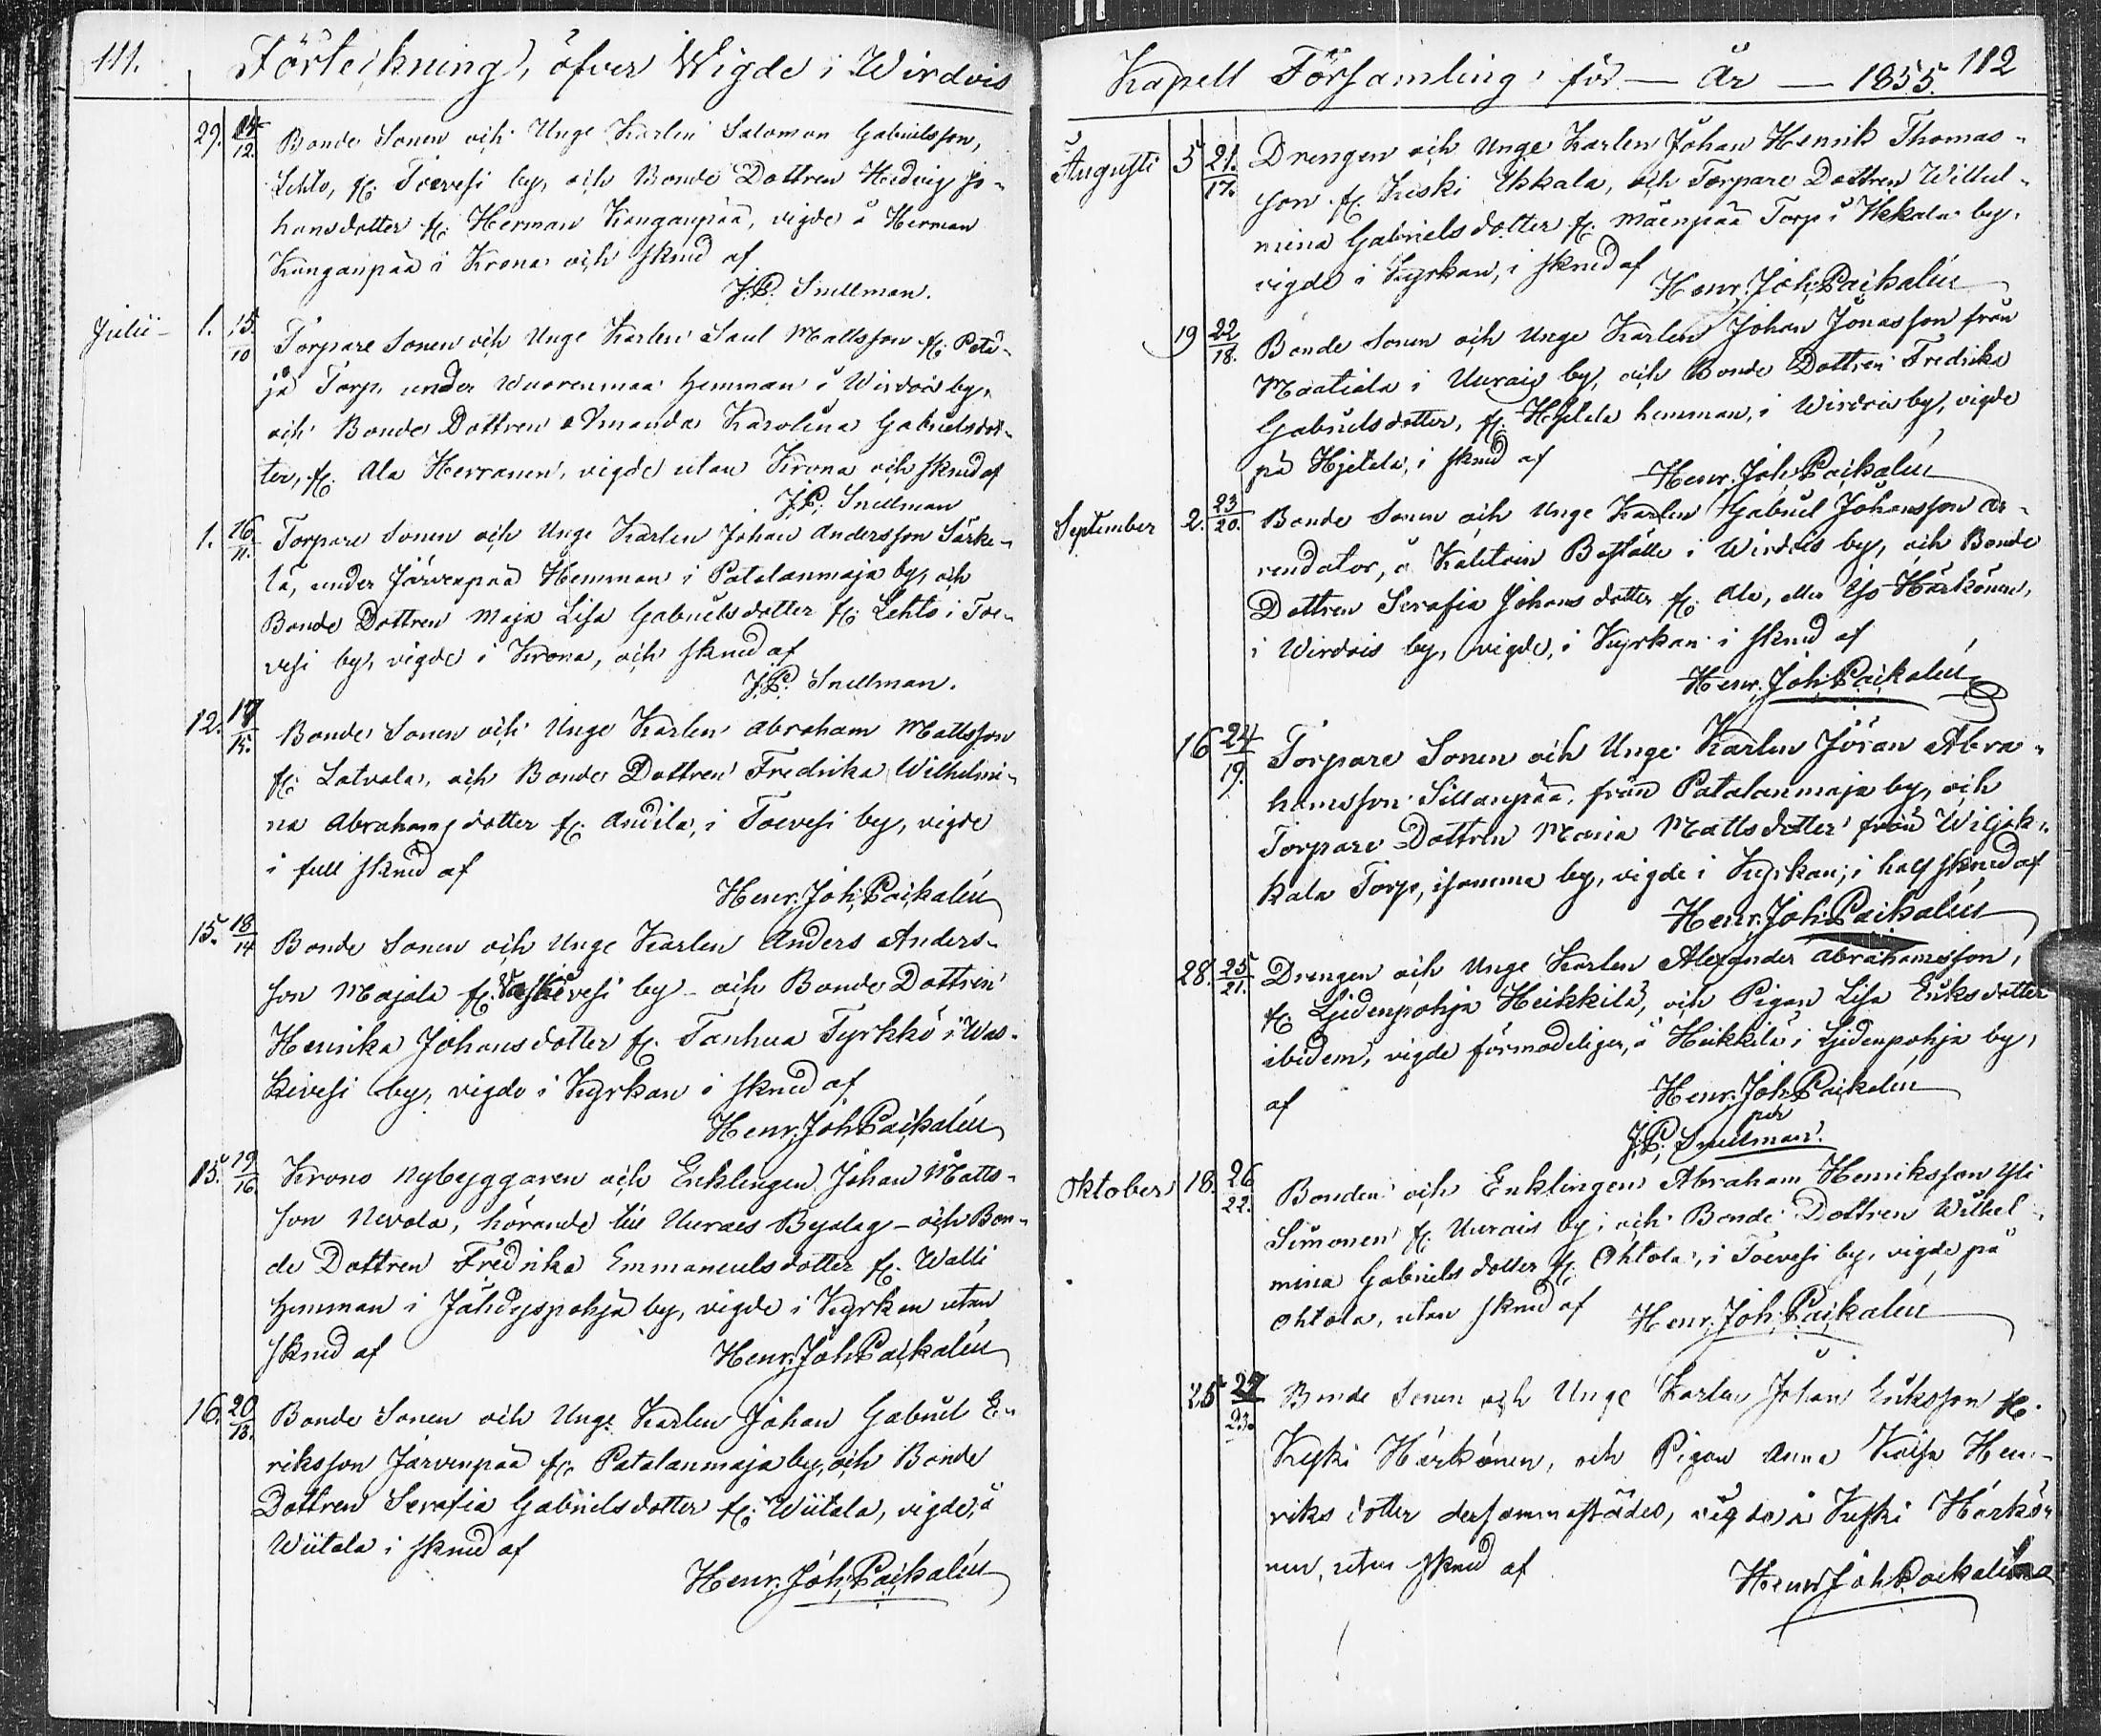 111. Förteckning, öfver Wigde i Wirdois
29. 14/12. Bonde Sonen och Unge Karlen Salomon Gabrielsson,
Lehto, fr. Toevesi by, och Bonde Dottren Hedvig Jo-
hansdotter fr. Herman Kanganpää, vigde å Herman
Kanganpää i Krona och skrud af
J.P. Snellman.
Julii 1. 15./10 Torpare Sonen och Unge Karlen Saul Mattsson fr. Petä-
jä Torp, under Wuorenmaa Hemman i Wirdois by,
och Bonde Dottren Amanda Karolina Gabrielsdot-
ter, fr. Ala Herranen, vigde utan Krona och skrud af
J.P. Snellman
1. 16/11. Torpare Sonen och Unge Karlen Johan Andersson Särke-
lä, under Järvenpää Hemman i Patalanmaja by, och
Bonde Dottren Maja Lisa Gabrielsdotter fr. Lehto i Toe-
vesi by, vigde i Krona, och skrud af
J.P. Snellman.
12. 17/15. Bonde Sonen och Unge Karlen Abraham Mattsson
fr. Latvala, och Bonde Dottren Fredrika Wilhelmi-
na Abrahamsdotter fr. Anttila, i Toevesi by, vigde
i full skrud af
Henr. Joh. Paikalén
15. 18/14 Bonde Sonen och Unge Karlen Anders Anders-
son Majala fr. Vaskivesi by - och Bonde Dottren
Henrika Johansdotter fr. Tanhua Tyrkkö i Was-
kivesi by, vigde i Kyrkan i skrud af
Henr. Joh. Paikalén
15. 19/16. Krono Nybyggaren och Enklingen Johan Matts-
son Nevala, hörande till Uuraes Byalag - och Bon-
de Dottren Fredrika Emmanuelsdotter fr. Walli
Hemman i Jähdyspohja by, vigde i Kyrkan utan
skrud af Henr. Joh. Paikalén
16. 20/13. Bonde Sonen och Unge Karlen Johan Gabriel E-
riksson Järvenpää fr. Patalanmaja by, och Bonde
Dottren Serafia Gabrielsdotter fr. Wiitala, vigde, å
Wiitala i skrud af
Henr. Joh. Paikalén
Kapell Församling, för — År — 1855. 112
Augusti 5 21./17. Drengen och Unge Karlen Johan Henrik Thomas-
son fr. Keski Ikkala, och Torpare Dottren Wilhel-
mina Gabrielsdotter fr. Mäenpää Torp i Ikkala by,
vigde i Kyrkan, i skrud af
Henr. Joh. Paikalén
19 22/18. Bonde Sonen och Unge Karlen Johan Jonasson från
Maatiala i Uurais by, och Bonde Dottren Fredrika
Gabrielsdotter, fr. Hjelda hemman, i Wirdois by, vigde
på Hjelda, i skrud af
Henr. Joh. Paikalén
September 2. 23/20. Bonde Sonen och Unge Karlen Gabriel Johansson Ar-
rendator, å Boställe i Wirdois by, och Bonde
Dottren Serafia Johansdotter fr. Ala, eller Iso Härkönen,
i Wirdois by, vigde, i Kyrkan i skrud af
Henr. Joh. Paikalén
16 24/19. Torpare Sonen och Unge Karlen Jöran Abra-
hamsson Sillanpää, från Patalanmaja by, och
Torpare Dottren Maria Mattsdotter från Wiljak-
kala Torp, i samma by, vigde i Kyrkan, i half skrud af
Henr. Joh. Paikalén
28. 25/21. Drengen och Unge Karlen Alexander Abrahamsson,
fr. Liedenpohja Heikkilä, och Pigan Lisa Eriksdotter
ibidem, vigde förmodeligen, å Heikkilä i Liedenpohja by,
af Henr. Joh. Paikalén
per
J.P. Snellman.
Oktober 18. 26/22. Bonden och Enklingen Abraham Henriksson Yli
Simonen fr. Uurais by, och Bonde Dottren Wilhel-
mina Gabrielsdotter fr. Ohtola, i Toevesi by, vigde på
Ohtola, utan skrud af Henr. Joh. Paikalén
25 27/23. Bonde Sonen och Unge Karlen Johan Eriksson fr.
Keski Härkönen, och Pigan Anna Kaisa Hen-
riksdotter dersammastädes, vigde å Keski Härkö-
nen, utan skrud af Henr. Joh. Paikalén